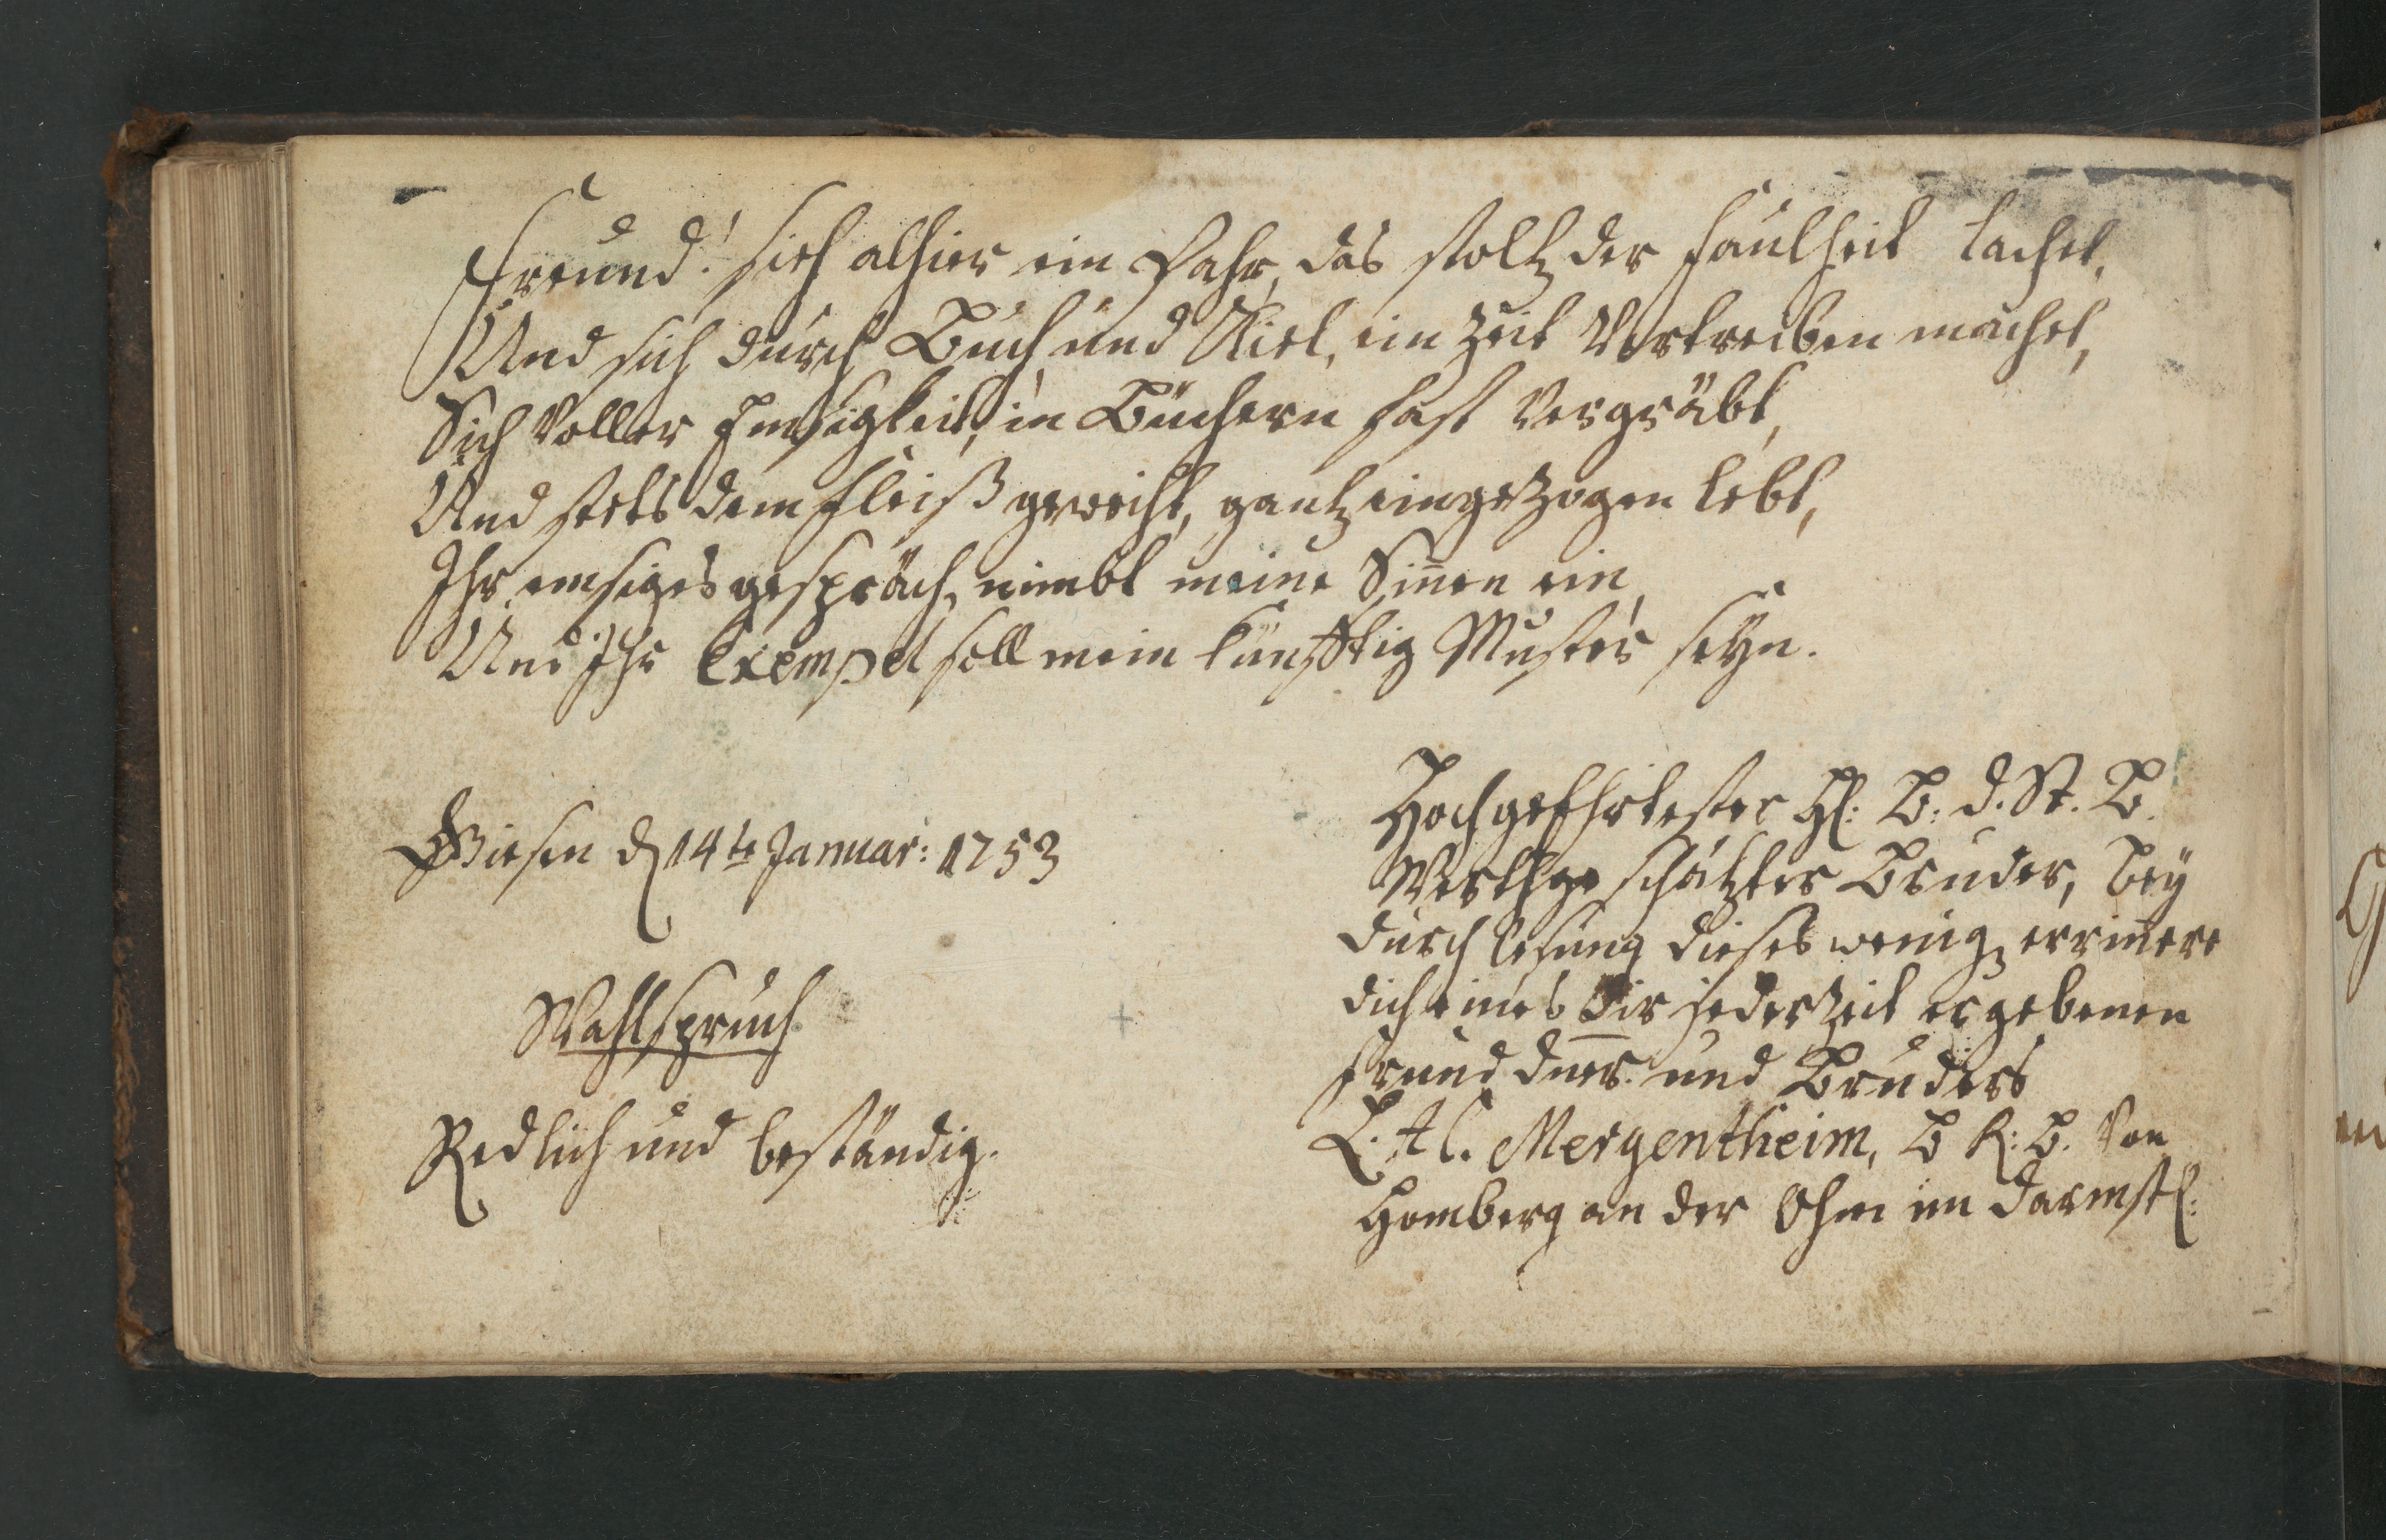 Freund! sieh alhier ein Pahr, das stoltz der faulheit lachet,
Und sich durch Buch und Kiel, ein Zeit Vertreiben machet,
Sich Voller Emsigkeit, in Büchern fast Vergräbt,
Und stets dem fleiß geweiht, gantz eingezogen lebt,
Ihr emsiges gespräch, nimbt meine Sinnen ein,
Und Ihr Exempel soll mein künfftig Muster seÿn.
Giesen d 14te Januar: 1753
Wahlspruch
Redlich und beständig.
Hochgeehrtester H: B. d. St. B.
Werthgeschätzter Bruder, beÿ
durchlesung dieses wenig errinnere
dich eines Dir jederzeit ergebenen
freund dners. und Bruders
L. A C. Mergentheim, B R: B. Von
Homberg an der Ohm im Darmst: